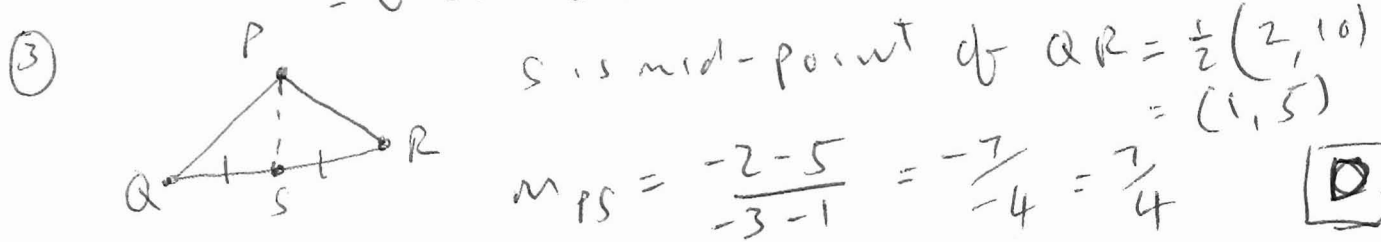 ③
P
Q
S
R
S is mid-point of QR = ½(2, 10)
= (1, 5)
m_PS = (-2-5)/(-3-1) = -7/-4 = 7/4
D